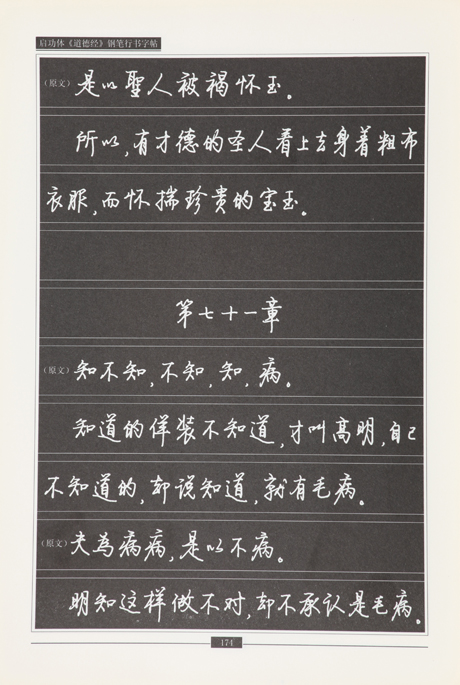 启功体《道德经》钢笔行书字帖
(原文)是以聖人被褐怀玉。
所以,有才德的圣人看上去身着粗布
衣服,而怀揣珍贵的宝玉。
第七十一章
(原文)知不知,不知,知,病。
知道的佯装不知道,才叫高明,自己
不知道的,却说知道,就有毛病。
(原文)夫为病病,是以不病。
明知这样做不对,却不承认是毛病。
174